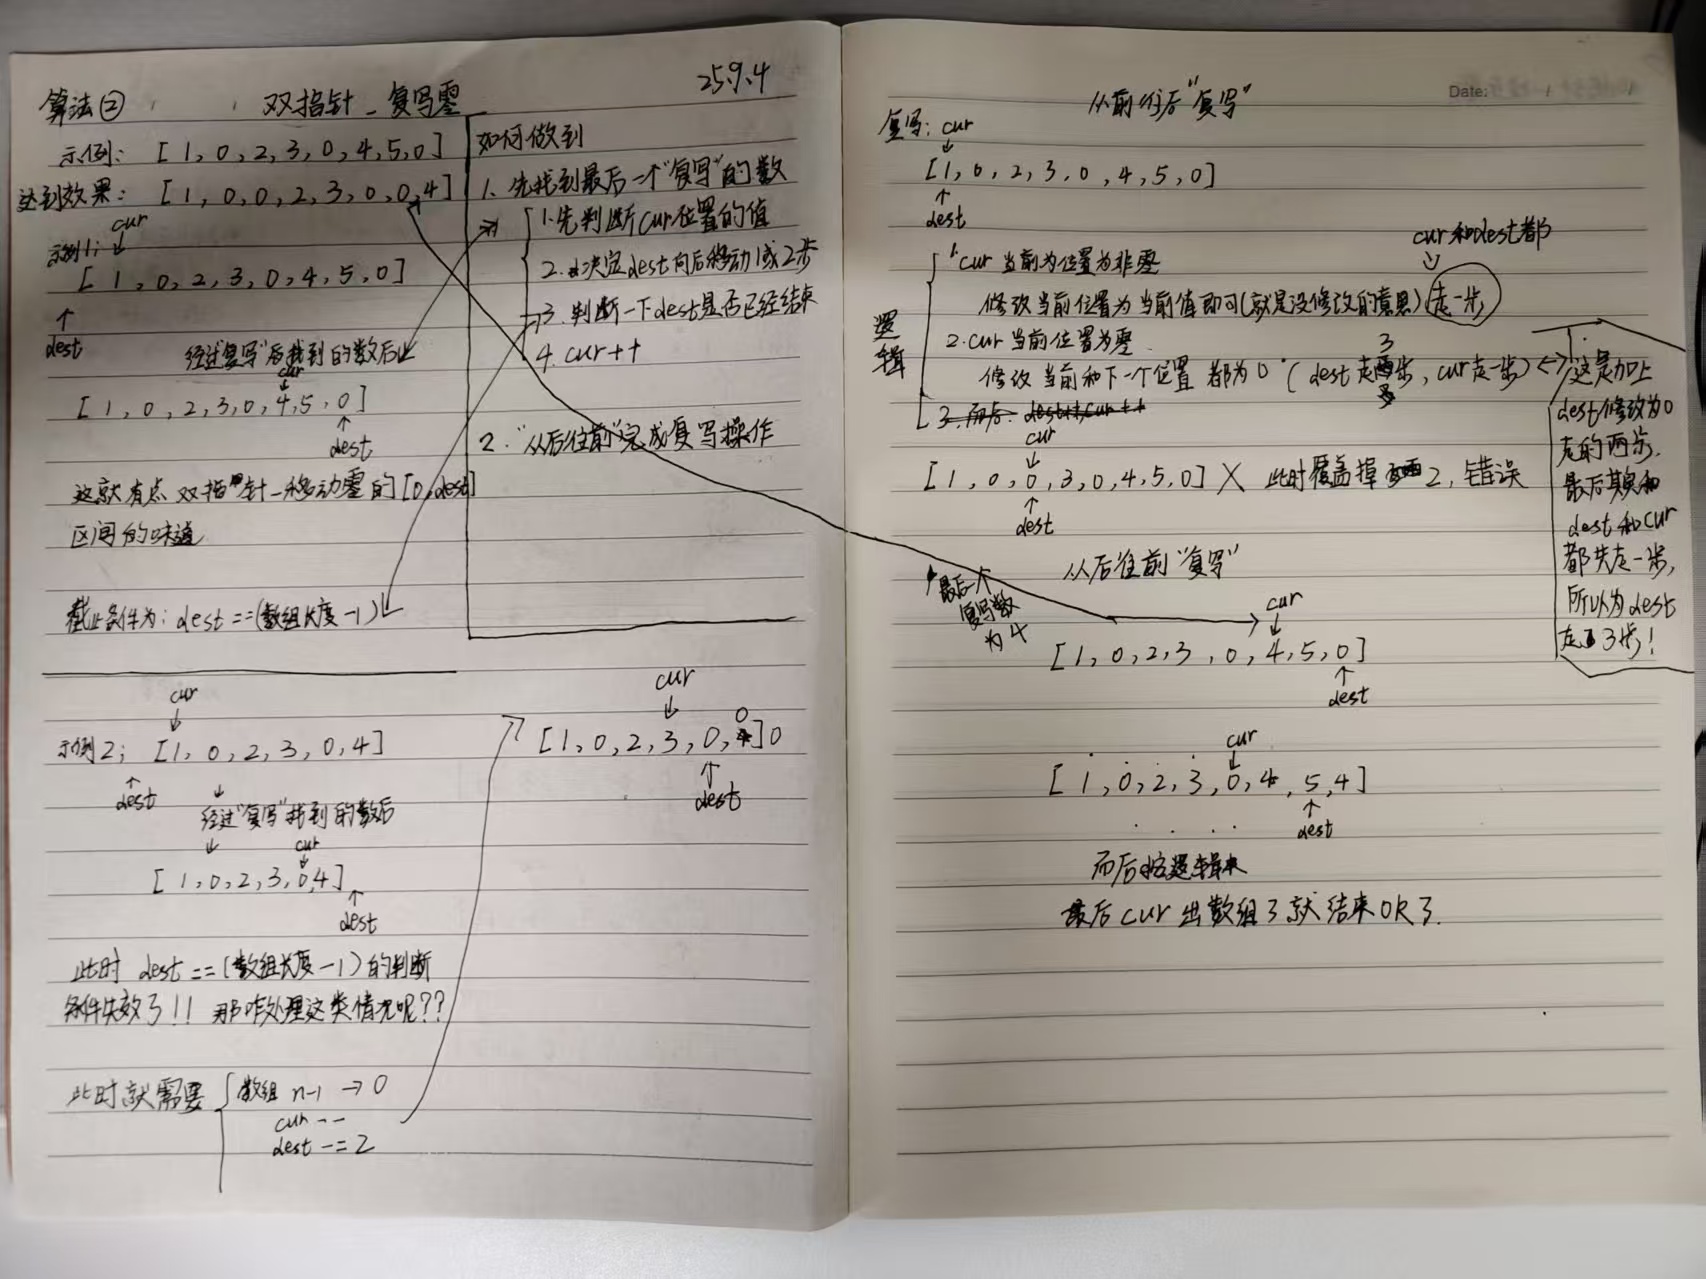 25.9.4
算法② 双指针_复写零
示例: [1,0,2,3,0,4,5,0]
达到效果: [1,0,0,2,3,0,0,4]
cur
示例1:
[1,0,2,3,0,4,5,0]
dest
经过"复写"后找到的数后
cur
[1,0,2,3,0,4,5,0]
dest
这就有点 双指针_移动零的[0,dest]
区间的味道
截止条件为: dest==(数组长度-1)
如何做到
1. 先找到最后一个"复写"的数
1.先判断cur位置的值
2.决定dest向后移动1或2步
3.判断一下dest是否已经结束
4. cur++
2. "从后往前"完成复写操作
cur
示例2; [1,0,2,3,0,4]
dest
经过"复写"找到的数后
cur
[1,0,2,3,0,4]
dest
此时 dest==(数组长度-1)的判断
条件失效了!! 那咋处理这类情况呢??
此时就需要 数组 n-1 →0
cur--
dest-=2
cur
0
[1,0,2,3,0,4]0
dest
Date:
从前往后"复写"
复写: cur
[1,0,2,3,0,4,5,0]
dest
cur和dest都
逻辑
1.cur 当前为位置为非零
修改当前位置为当前值即可(就是没修改的意思)走一步
2.cur 当前位置为零
3
修改 当前和下一个位置 都为0 (dest走两步,cur走一步)
3.而后 dest++,cur++
cur
[1,0,0,3,0,4,5,0] X 此时覆盖掉 2,错误
dest
这是加上
dest修改为0
走的两步.
最后
dest和cur
都共走一步,
所以为dest
走了3步!
从后往前"复写"
最后一个
复写数
为4
cur
[1,0,2,3,0,4,5,0]
dest
cur
[1,0,2,3,0,4,5,4]
dest
而后按逻辑来
最后cur出数组了就结束OK了.